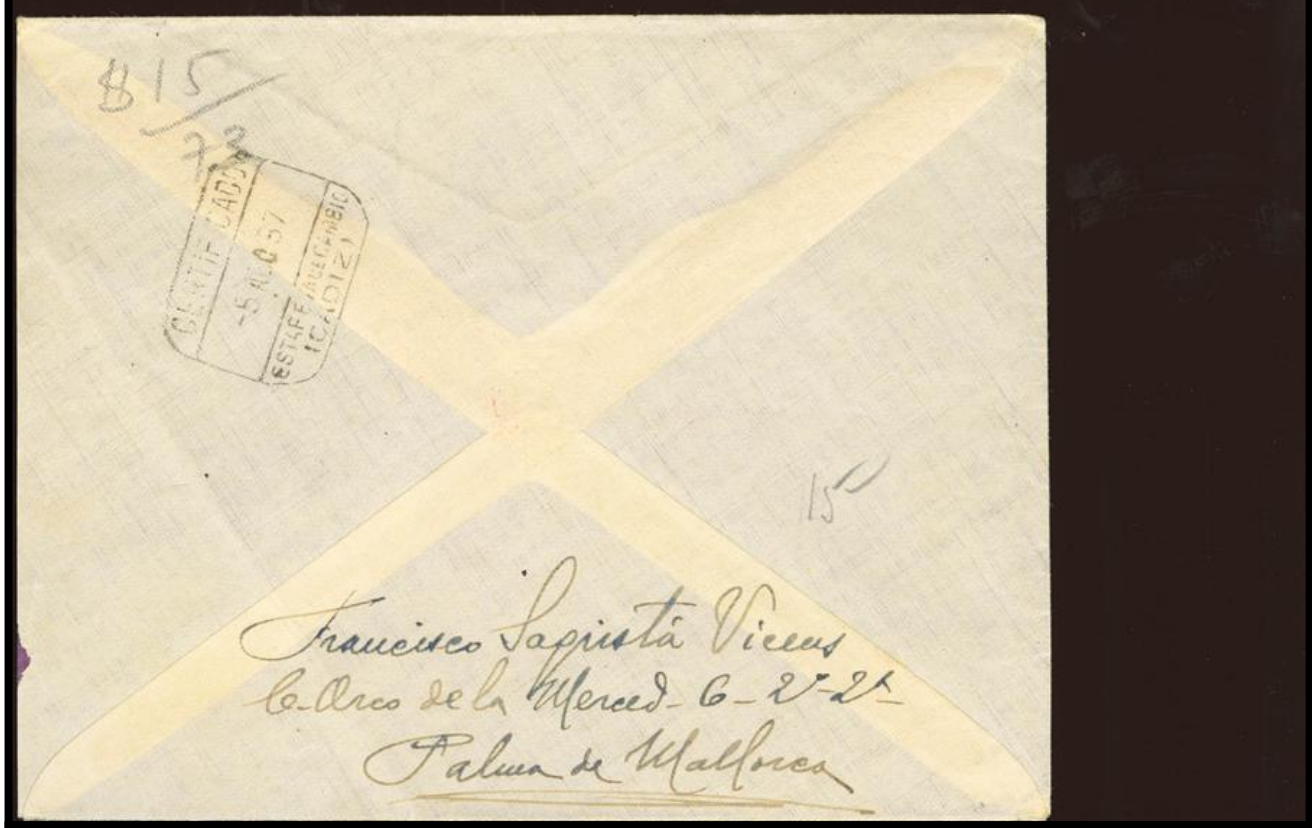 $15/
73
CERTIFICADO
-5 AGO 37
ESTAFETA DE CAMBIO
(CADIZ)
15
Francisco Sagristá Vicens
C. Arco de la Merced - 6 - 2º - 2ª
Palma de Mallorca